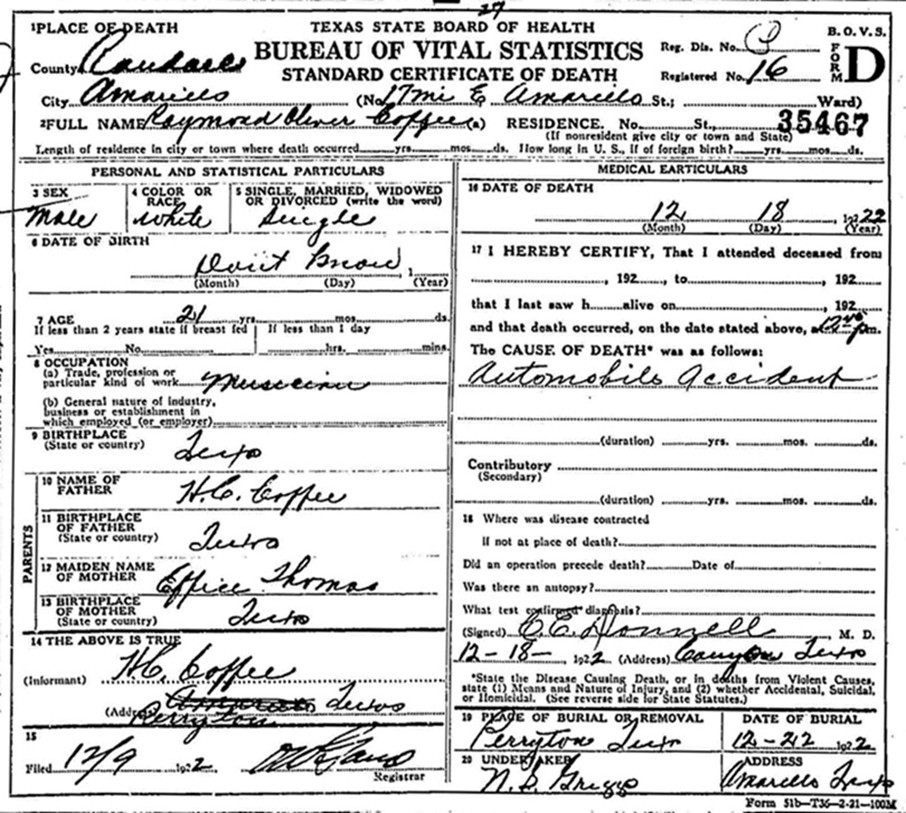 27
1 PLACE OF DEATH TEXAS STATE BOARD OF HEALTH B. O. V. S.
BUREAU OF VITAL STATISTICS Reg. Dis. No. FORM D
County Randall STANDARD CERTIFICATE OF DEATH Registered No. 16
City Amarillo (No. 17 mi E Amarillo St.; Ward)
2 FULL NAME Raymond Oliver Coffee (a) RESIDENCE. No. St., 35467
(If nonresident give city or town and State)
Length of residence in city or town where death occurred yrs. mos. ds. How long in U. S., if of foreign birth? yrs. mos. ds.
PERSONAL AND STATISTICAL PARTICULARS
3 SEX 4 COLOR OR RACE 5 SINGLE, MARRIED, WIDOWED OR DIVORCED (write the word)
Male White Single
6 DATE OF BIRTH
Dont Know, 1
(Month) (Day) (Year)
7 AGE 21 yrs. mos. ds.
If less than 2 years state if breast fed If less than 1 day
Yes No hrs. mins.
8 OCCUPATION
(a) Trade, profession or
particular kind of work Musician
(b) General nature of industry,
business or establishment in
which employed (or employer)
9 BIRTHPLACE
(State or country) Texas
PARENTS
10 NAME OF FATHER H.C. Coffee
11 BIRTHPLACE OF FATHER
(State or country) Texas
12 MAIDEN NAME OF MOTHER Effice Thomas
13 BIRTHPLACE OF MOTHER
(State or country) Texas
14 THE ABOVE IS TRUE
(Informant) H.C. Coffee
(Address) Amarillo Texas
Perryton
15
Filed 12/9 1922
Registrar
MEDICAL EARTICULARS
16 DATE OF DEATH
12 18, 1922
(Month) (Day) (Year)
17 I HEREBY CERTIFY, That I attended deceased from
, 192 , to , 192
that I last saw h alive on , 192
and that death occurred, on the date stated above, at m.
The CAUSE OF DEATH* was as follows:
Automobile Accident
(duration) yrs. mos. ds.
Contributory
(Secondary)
(duration) yrs. mos. ds.
18 Where was disease contracted
if not at place of death?
Did an operation precede death? Date of
Was there an autopsy?
What test confirmed diagnosis?
(Signed) C.E. Donnell, M. D.
12-18-, 1922 (Address) Canyon Texas
*State the Disease Causing Death, or in deaths from Violent Causes,
state (1) Means and Nature of Injury, and (2) whether Accidental, Suicidal,
or Homicidal. (See reverse side for State Statutes.)
19 PLACE OF BURIAL OR REMOVAL DATE OF BURIAL
Perryton Texas 12-22 1922
20 UNDERTAKER ADDRESS
N.S. Griggs Amarillo Texas
Form 51b-T36-2-21-100M